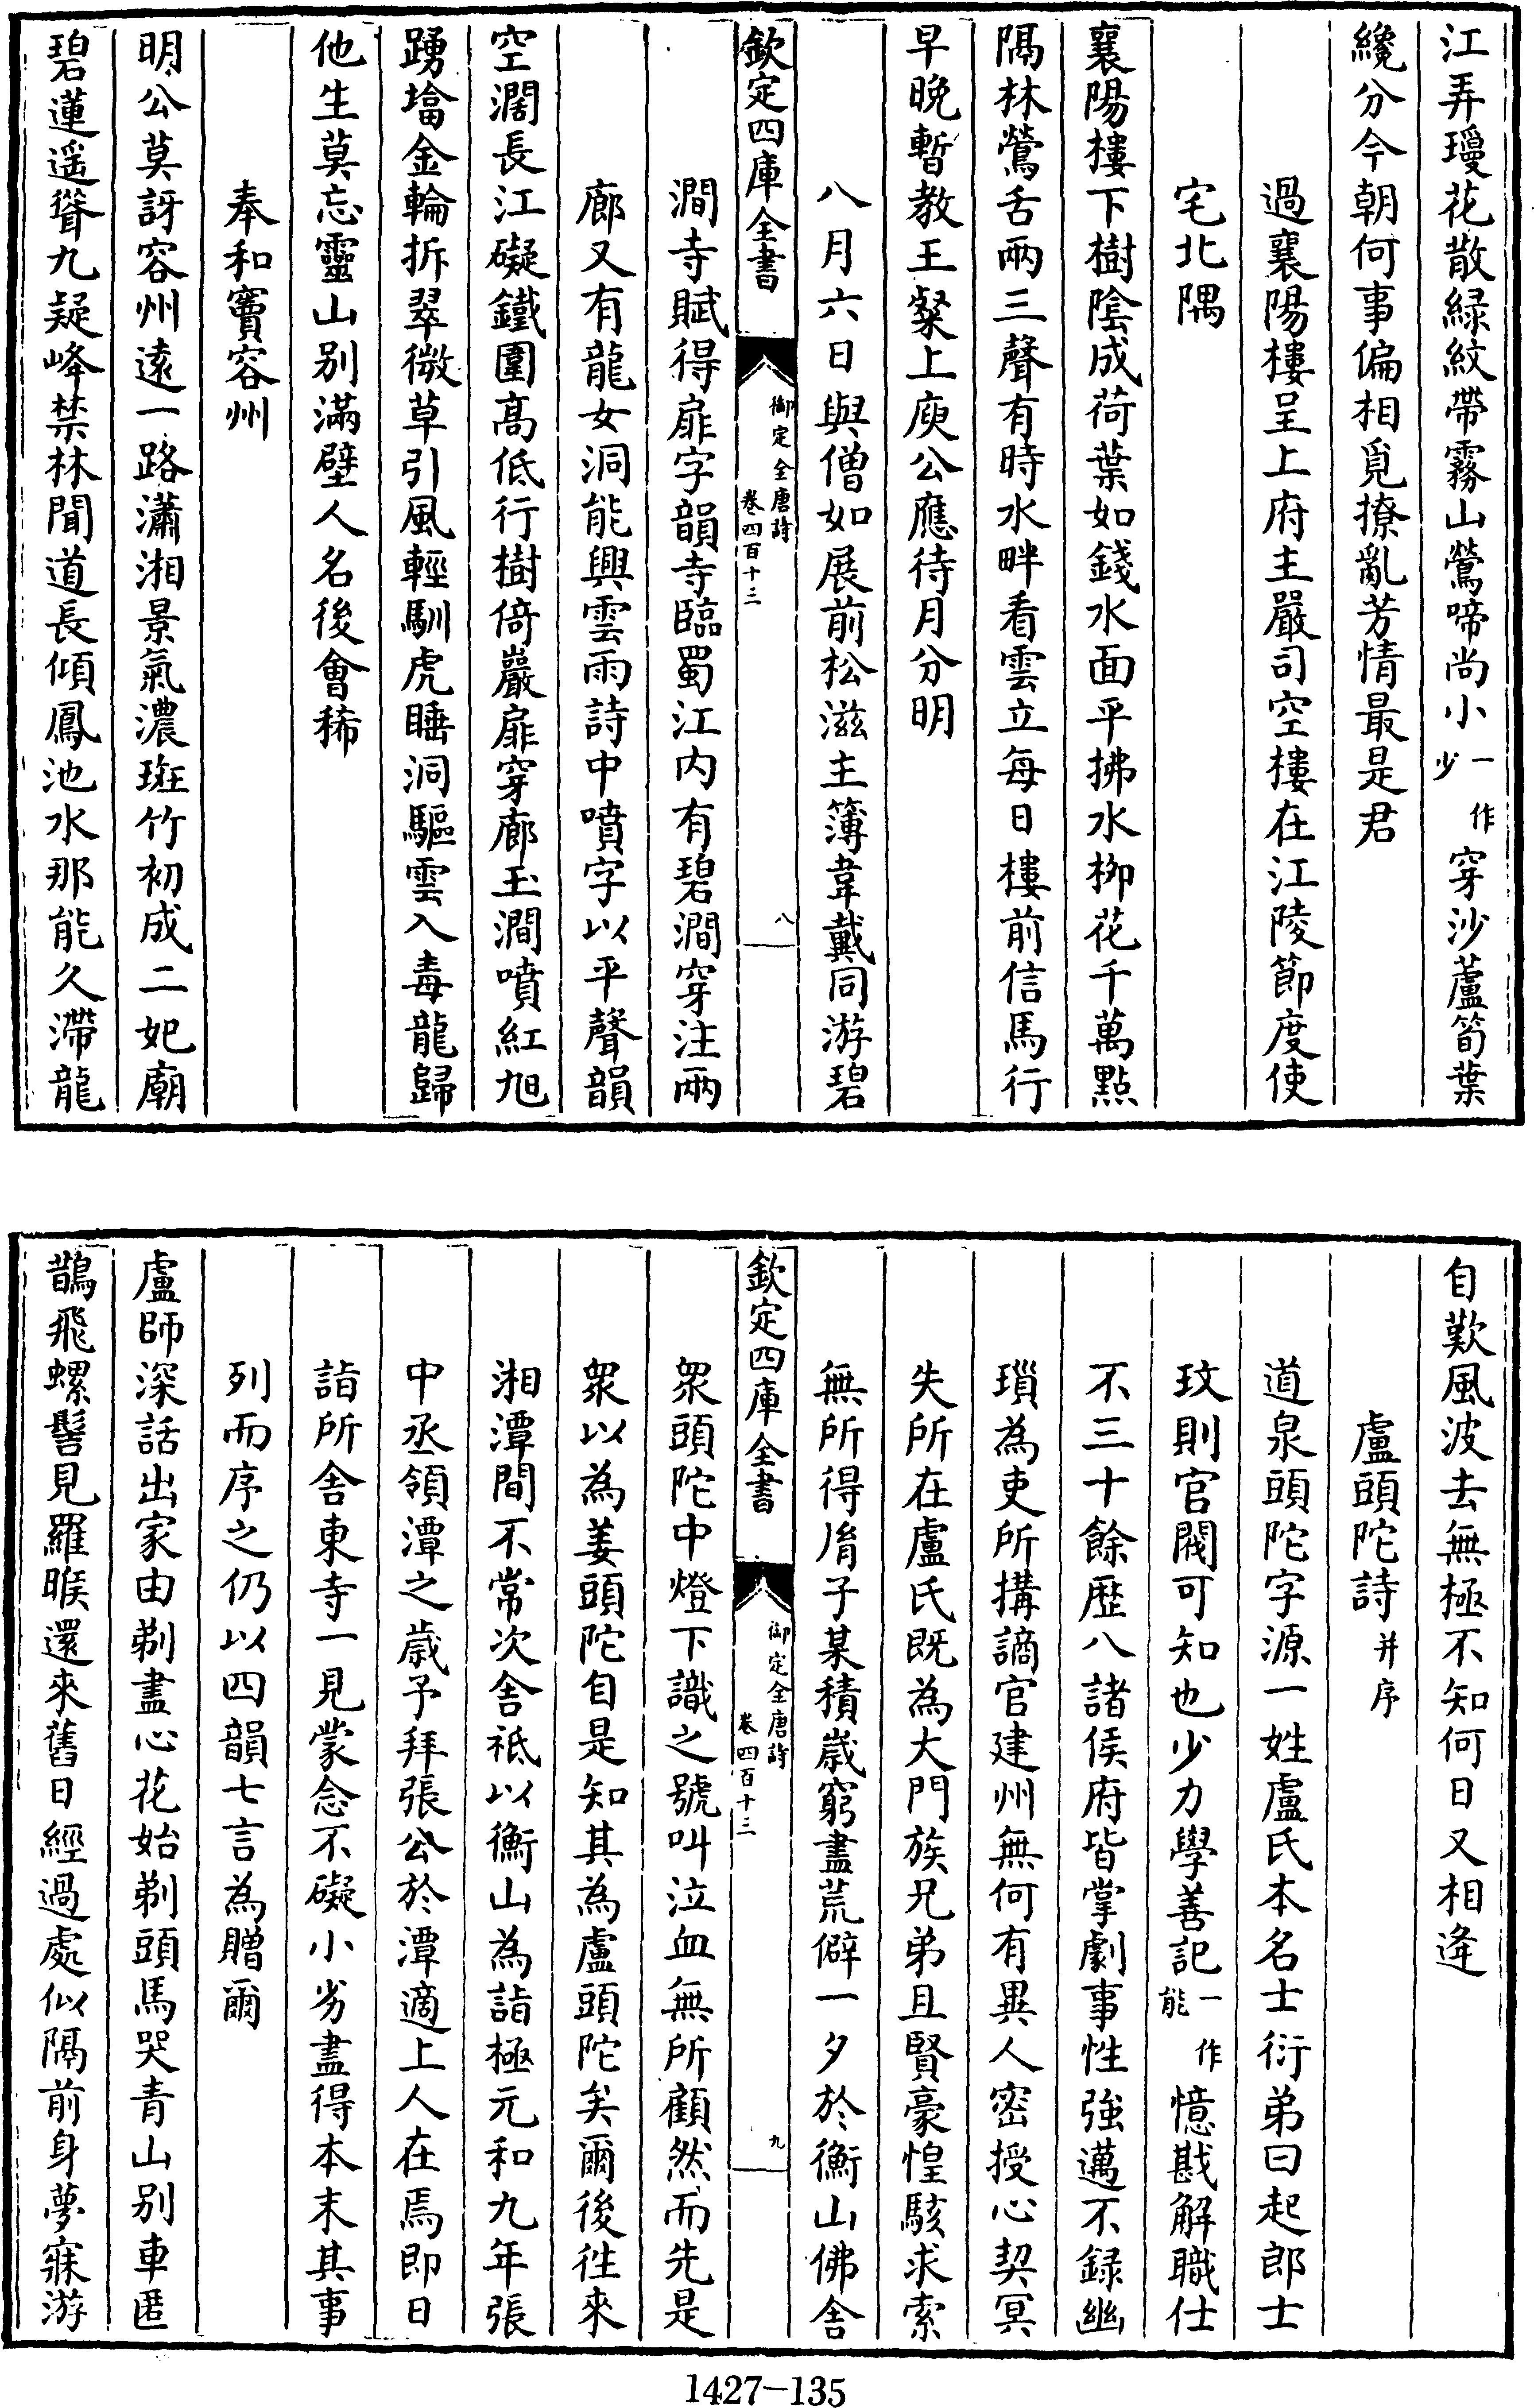 江弄瓊花散緑紋帶霧山鶯啼尚小一作少穿沙蘆筍葉
纔分今朝何事偏相覓撩亂芳情最是君
過襄陽樓呈上府主嚴司空樓在江陵節度使
宅北隅
襄陽樓下樹陰成荷葉如錢水面平拂水栁花千萬㸃
隔林鶯舌兩三聲有時水畔看雲立每日樓前信馬行
早晚暫教王粲上庾公應待月分明
八月六日與僧如展前松滋主簿韋戴同游碧
欽定四庫全書
御定全唐詩
卷四百十三
八
澗寺賦得扉字韻寺臨蜀江内有碧澗穿注兩
廊又有龍女洞能興雲雨詩中噴字以平聲韻
空濶長江礙鐵圍髙低行樹倚巖扉穿廊玉澗噴紅旭
踴㙮金輪拆翠微草引風輕馴虎睡洞驅雲入毒龍歸
他生莫忘靈山别滿壁人名後㑹稀
奉和竇容州
明公莫訝容州逺一路瀟湘景氣濃斑竹初成二妃廟
碧蓮遥聳九疑峰禁林聞道長傾鳳池水那能久滯龍
自歎風波去無極不知何日又相逢
盧頭陀詩并序
道泉頭陀字源一姓盧氏本名士衍弟曰起郎士
玟則官閥可知也少力學善記一作能憶戡解職仕
不三十餘歴八諸侯府皆掌劇事性強邁不録幽
瑣為吏所搆謫官建州無何有異人密授心契冥
失所在盧氏既為大門族兄弟且賢豪惶駭求索
無所得胤子某積歳窮盡荒僻一夕於衡山佛舍
欽定四庫全書
御定全唐詩
卷四百十三
九
衆頭陀中燈下識之號叫泣血無所顧然而先是
衆以為姜頭陀自是知其為盧頭陀矣爾後徃來
湘潭間不常次舍祗以衡山為詣極元和九年張
中丞領潭之歳予拜張公於潭適上人在焉即日
詣所舍東寺一見蒙念不礙小劣盡得本末其事
列而序之仍以四韻七言為贈爾
盧師深話出家由剃盡心花始剃頭馬哭青山别車匿
鵲飛螺髻見羅睺還來舊日經過處似隔前身夢寐游
1427-135